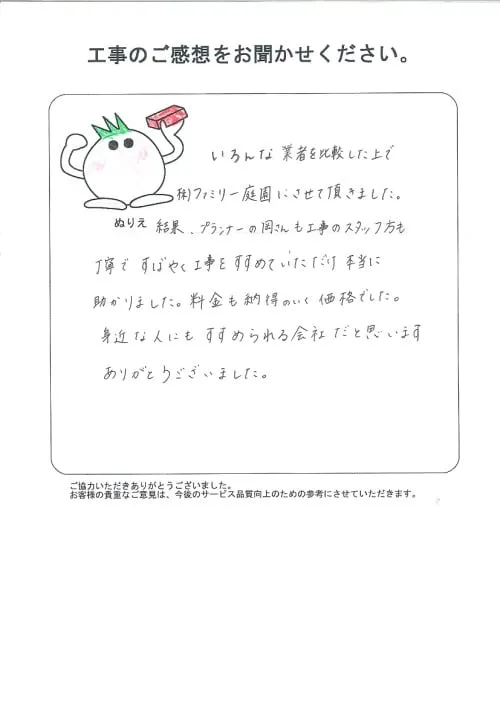 工事のご感想をお聞かせください。
いろんな業者を比較した上で
(株)ファミリー庭園にさせて頂きました。
ぬりえ
結果、プランナーの岡さんも工事のスタッフ方も
丁寧で すばやく工事をすすめていただけ本当に
助かりました。料金も納得のいく価格でした。
身近な人にもすすめられる会社だと思います
ありがとうございました。
ご協力いただきありがとうございました。
お客様の貴重なご意見は、今後のサービス品質向上のための参考にさせていただきます。